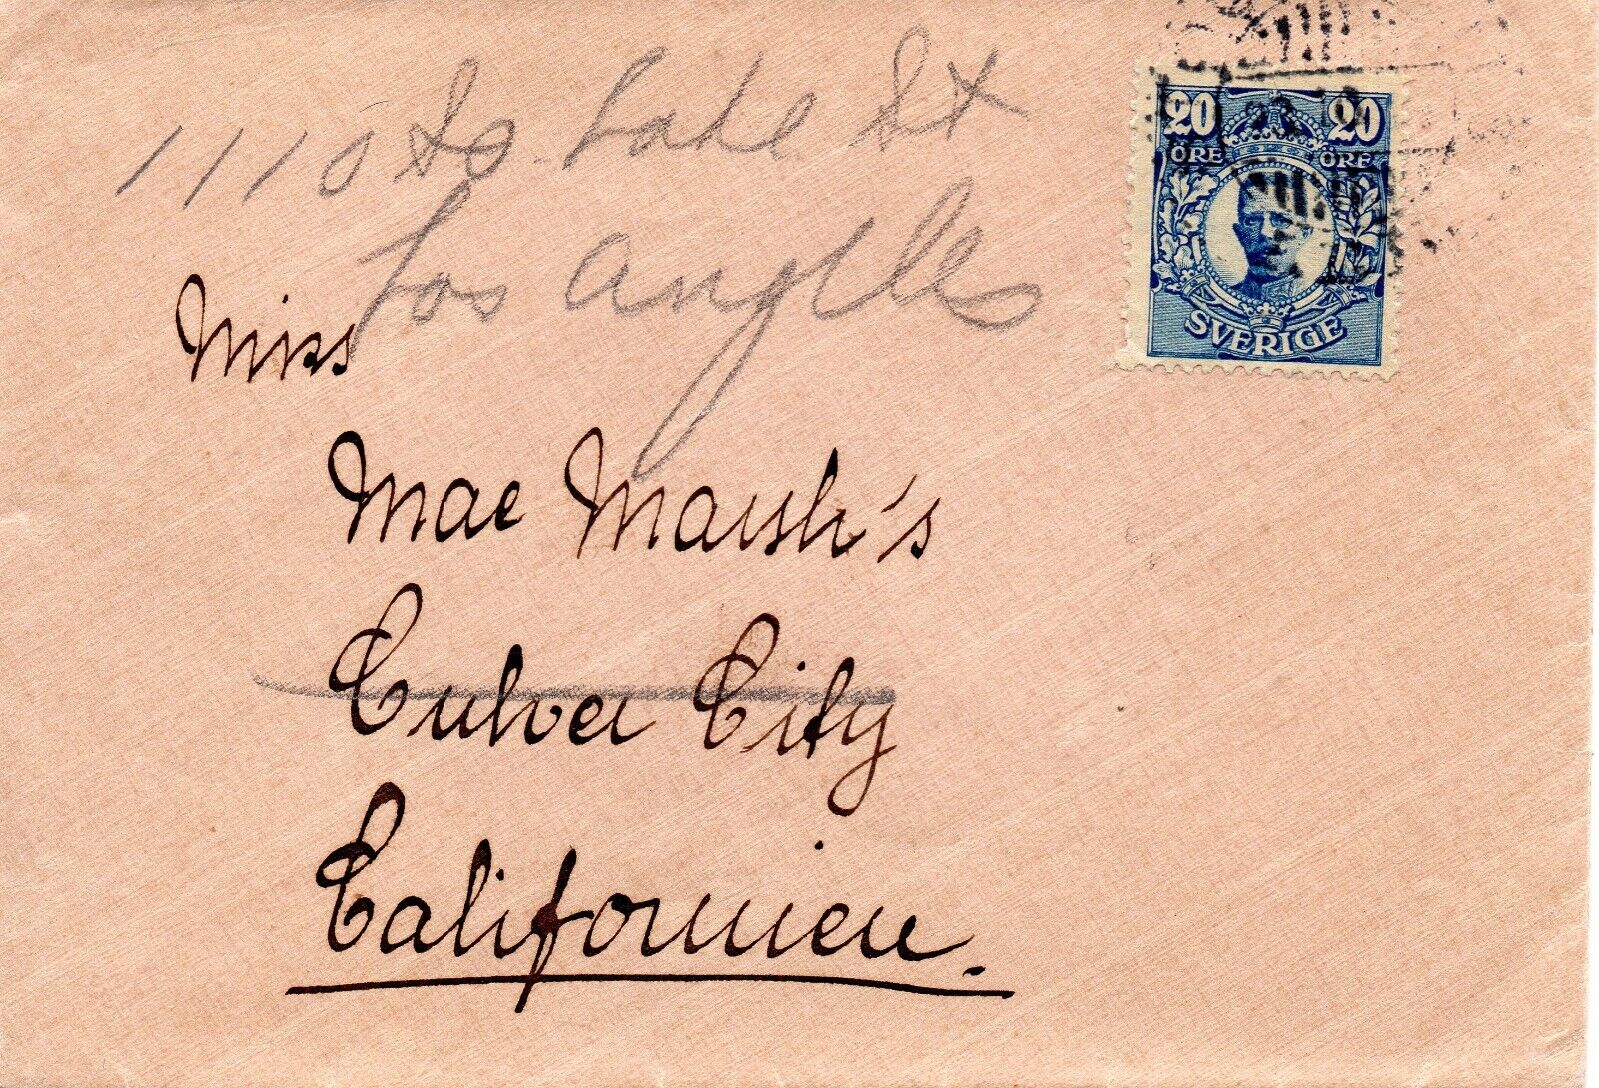 1110 So. Lake St
Los Angeles
20 20
ÖRE ÖRE
SVERIGE
Miss
Mae Marsh's
Culver City
Californien.